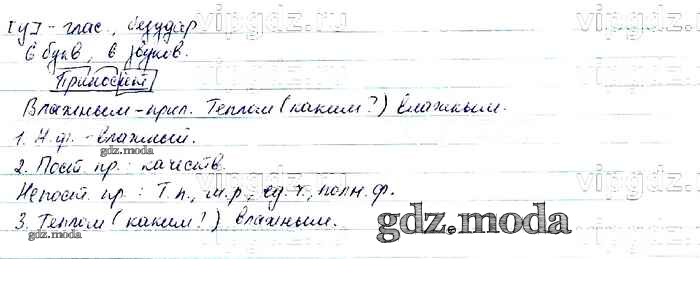 [у] - глас., безудар
6 букв, 6 звуков.
Приносит
Влажным - прил. Теплом (каким?) влажным.
1. Н.ф. - влажный.
gdz.moda
2. Пост. пр.: качеств.
Непост. пр.: Т.п., м.р., ед.ч., полн.ф.
3. Теплом (каким?) влажным.
gdz.moda
gdz.moda
vipgdz.ru
vipgdz.ru
vipgdz.ru